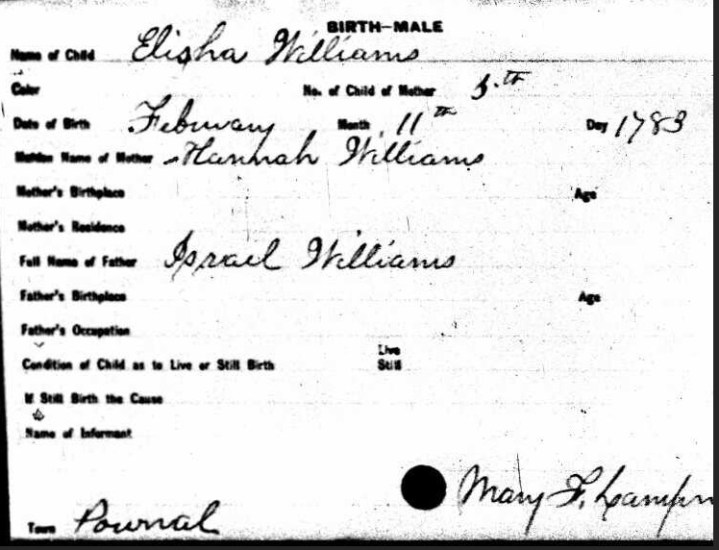 BIRTH—MALE
Name of Child Elisha Williams
Color No. of Child of Mother 5.th
Date of Birth February Month 11th Day 1783
Maiden Name of Mother Hannah Williams
Mother's Birthplace Age
Mother's Residence
Full Name of Father Israel Williams
Father's Birthplace Age
Father's Occupation
Live
Condition of Child as to Live or Still Birth Still
If Still Birth the Cause
Name of Informant
Mary F.
Town Pownal